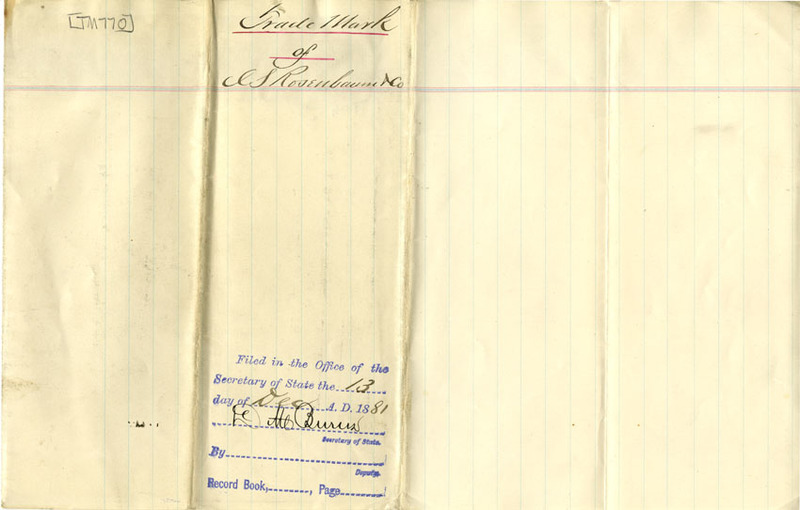 [TM770]
Trade Mark
of
A S Rosenbaum & Co
Filed in the Office of the
Secretary of State the 13
day of Dec A. D. 1881
M Burns
Secretary of State.
By
Deputy.
Record Book, , Page